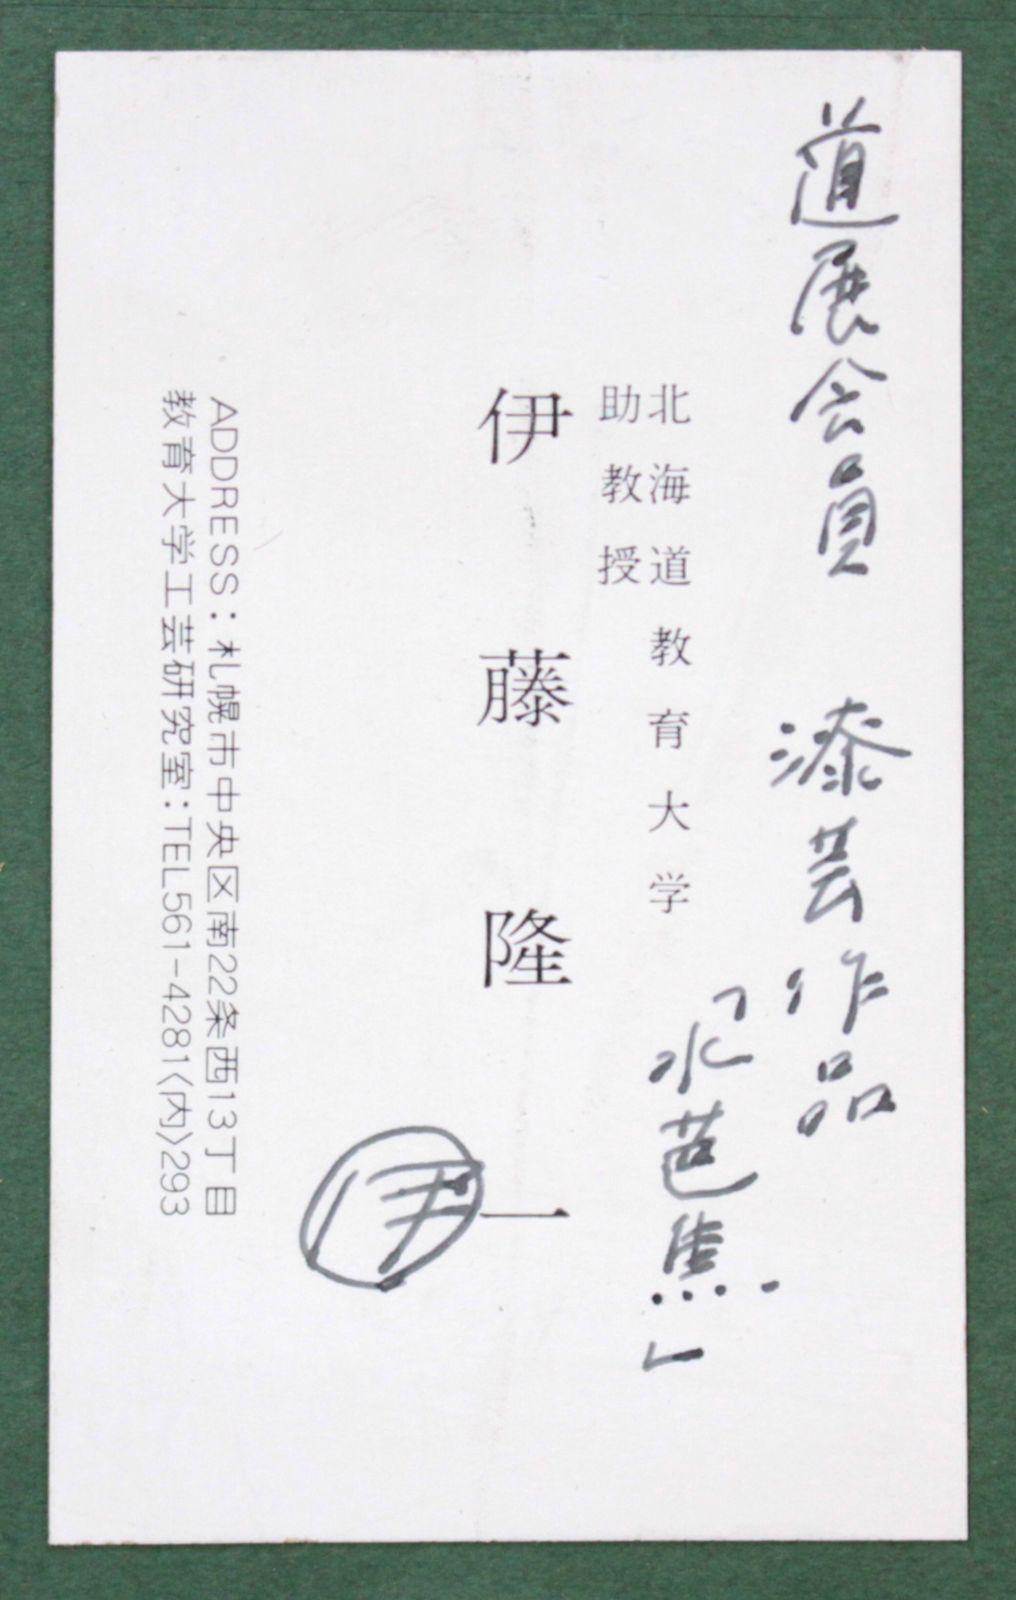 道展会員 漆芸作品
「水芭焦」
北海道教育大学
助教授
伊藤隆一
伊
ADDRESS：札幌市中央区南22条西13丁目
教育大学工芸研究室：TEL561-4281〈内〉293